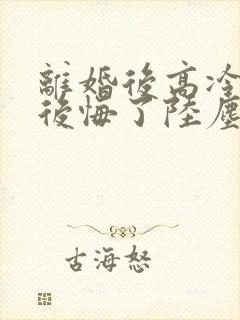 離婚後高冷
後悔了陸塵
古海怒